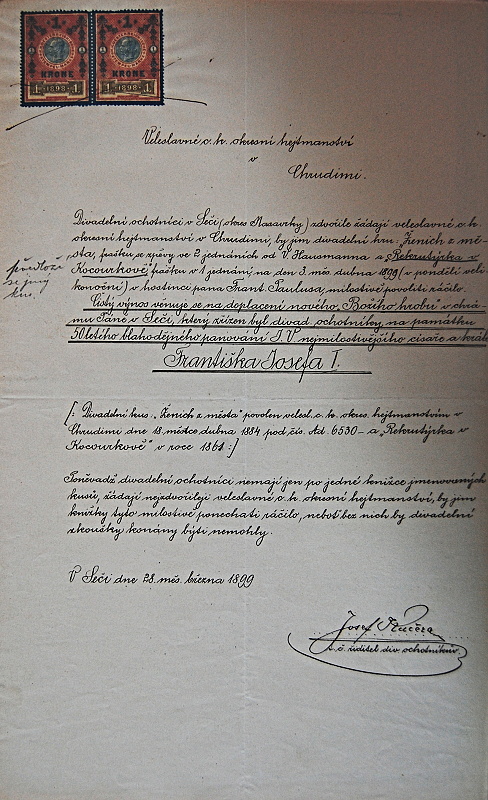 1 1
KRONE KRONE
1 1898 1 1 1898 1
Veleslavné c. k. okresní hejtmanství
v
Chrudimi.
Divadelní ochotníci v Seči (okres Nasavrky) zdvořile žádají veleslavné c. k.
okresní hejtmanství v Chrudimi, by jim divadelní hru: Ženich z mě-
sta, frašku se zpěvy ve 2 jednáních od V. Hausmanna a „Rekrutýrka v
Kocourkově“ frašku v 1 jednání na den 3. měs. dubna 1899 (v pondělí veli-
konoční) v hostinci pana Frant. Paulusa, milostivě povoliti ráčilo.
Čistý výnos věnuje se na doplacení nového „Božího hrobu“ v chrá-
mu Páně v Seči, který zřízen byl divad. ochotníky, na památku
50letého blahodějného panování J. V. nejmilostivějšího císaře a krále
Františka Josefa I.
předloze
kus!
[: Divadelní kus „Ženich z města“ povolen velesl. c. k. okres. hejtmanstvím v
Chrudimi dne 18. měsíce dubna 1884 pod čís. Ad 6530 – a „Rekrutýrka v
Kocourkově“ v roce 1861 :]
Poněvadž divadelní ochotníci nemají jen po jedné knížce jmenovaných
kusů, žádají nejzdvořileji veleslavné c. k. okresní hejtmanství, by jim
knížky tyto milostivě ponechati ráčilo, neboť bez nich by divadelní
zkoušky konány býti nemohly.
V Seči dne 28. měs. března 1899
Josef Kučera
t. č. ředitel div. ochotníků.